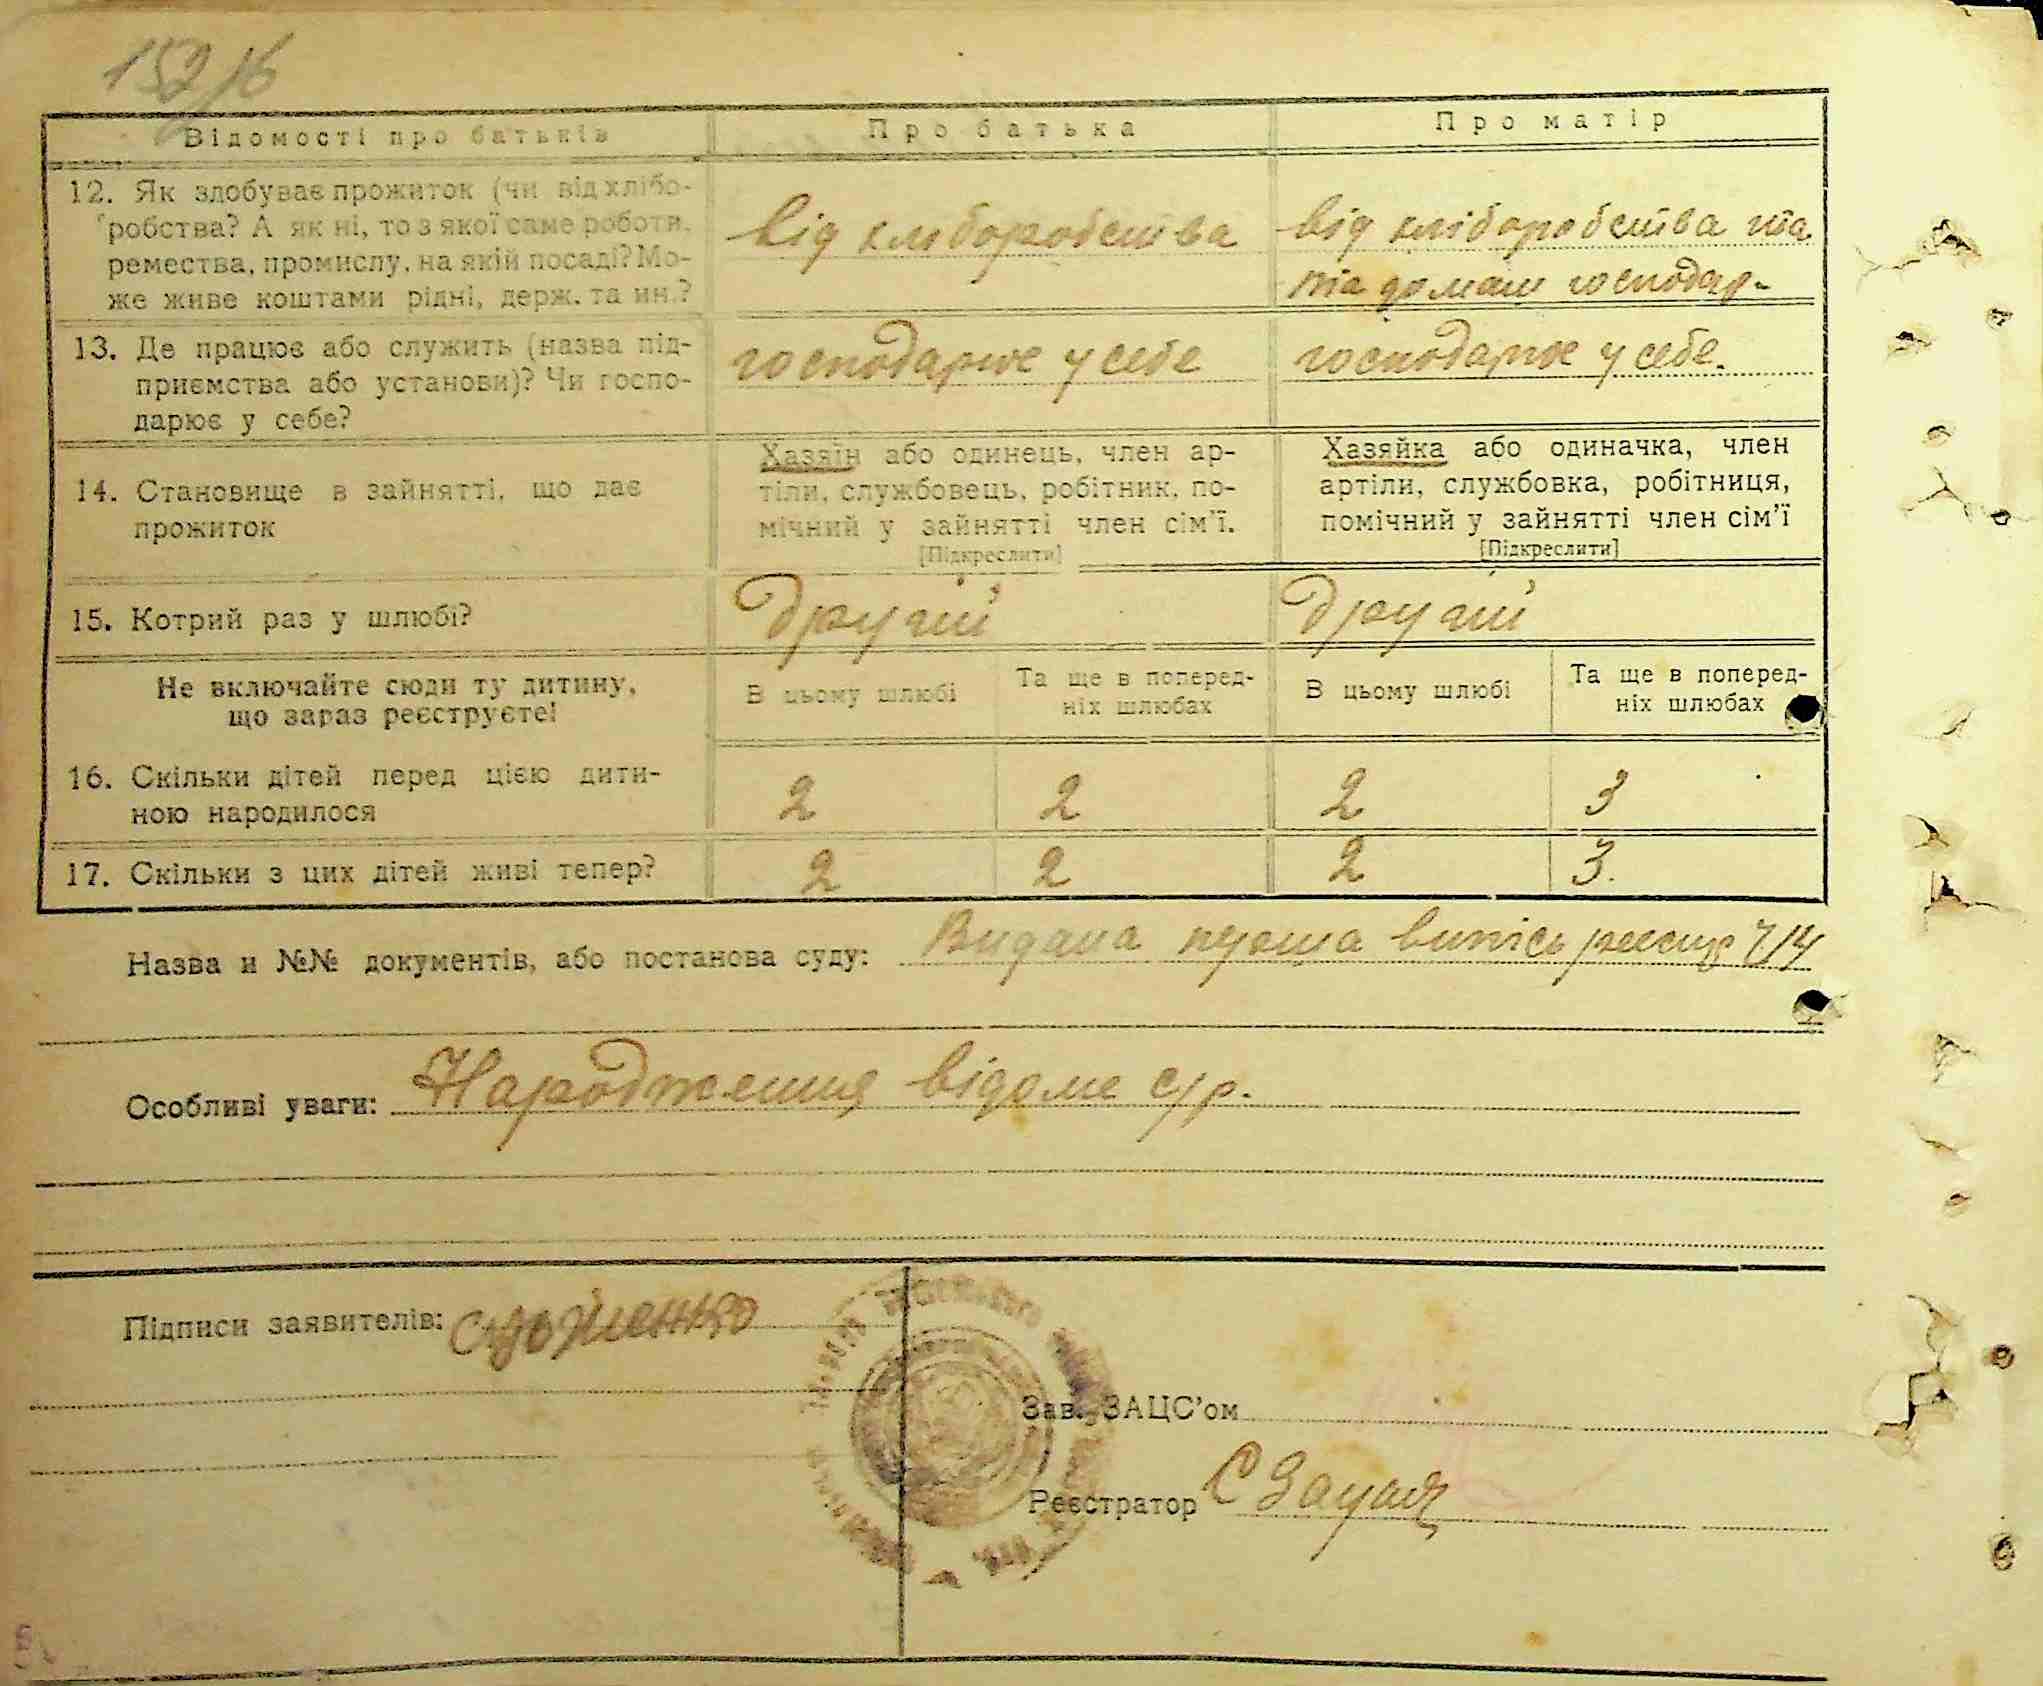 152/б
Відомості про батьків
Про батька
Про матір
12. Як здобуває прожиток (чи від хлібо-
робства? А як ні, то з якої саме роботи,
ремества, промислу, на якій посаді? Мо-
же живе коштами рідні, держ. та ин.?
від хліборобства
від хліборобства та
та домаш господар-
13. Де працює або служить (назва під-
приємства або установи)? Чи госпо-
дарює у себе?
господарює у себе
господарює у себе.
14. Становище в зайнятті, що дає
прожиток
Хазяїн або одинець, член ар-
тіли, службовець, робітник, по-
мічний у зайнятті член сім'ї.
[Підкреслити]
Хазяйка або одиначка, член
артіли, службовка, робітниця,
помічний у зайнятті член сім'ї
[Підкреслити]
15. Котрий раз у шлюбі?
другий
другий
Не включайте сюди ту дитину,
що зараз реєструєте!
В цьому шлюбі
Та ще в поперед-
ніх шлюбах
В цьому шлюбі
Та ще в поперед-
ніх шлюбах
16. Скільки дітей перед цією дити-
ною народилося
2 2 2 3
17. Скільки з цих дітей живі тепер?
2 2 2 3.
Назва и №№ документів, або постанова суду: Видана перша випись
Особливі уваги: Народження відоме с/р.
Підписи заявителів:
Зав. ЗАЦС'ом
Реєстратор С Зауал